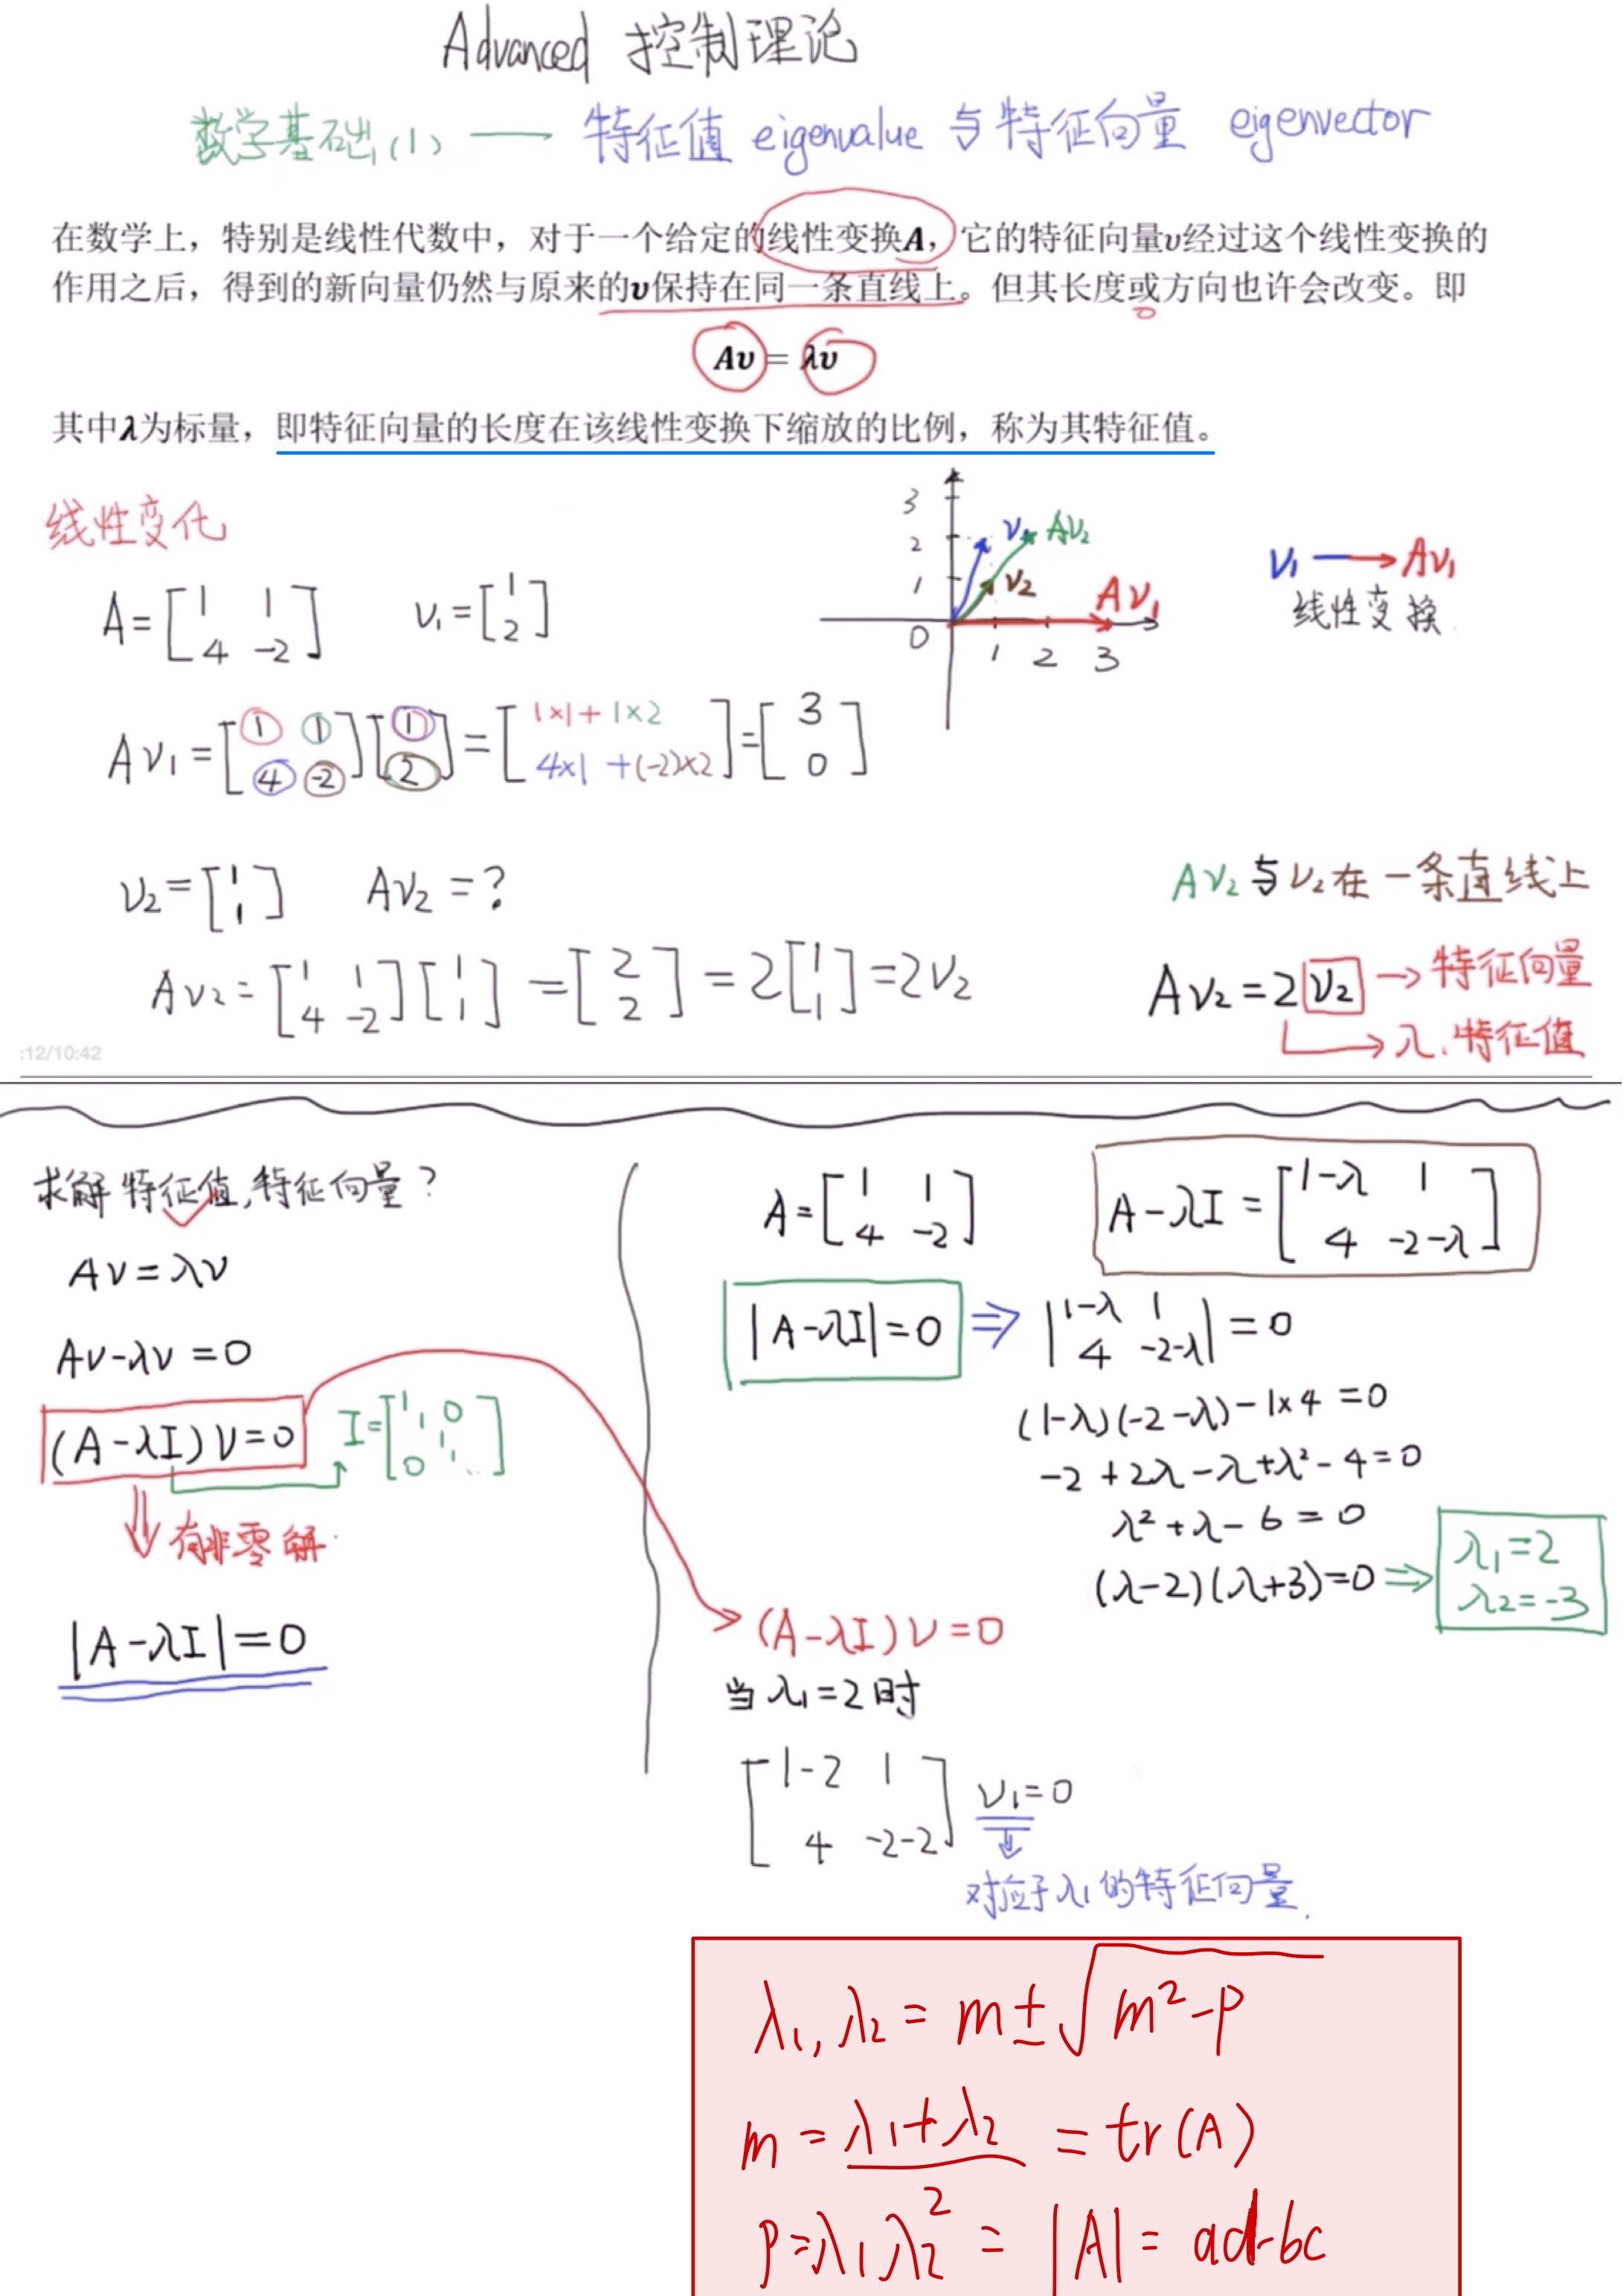 Advanced 控制理论
数学基础(1) —— 特征值 eigenvalue 与特征向量 eigenvector
在数学上，特别是线性代数中，对于一个给定的线性变换A，它的特征向量v经过这个线性变换的
作用之后，得到的新向量仍然与原来的v保持在同一条直线上。但其长度或方向也许会改变。即
Av = λv
其中λ为标量，即特征向量的长度在该线性变换下缩放的比例，称为其特征值。
线性变化
3
2
1
0 1 2 3
V₁ Av₂
v₂
Av₁
V₁ → Av₁
线性变换
A = [1 1; 4 -2] v₁ = [1; 2]
Av₁ = [1 1; 4 -2][1; 2] = [1×1+1×2; 4×1+(-2)×2] = [3; 0]
v₂ = [1; 1] Av₂ = ?
Av₂ = [1 1; 4 -2][1; 1] = [2; 2] = 2[1; 1] = 2v₂
Av₂与v₂在一条直线上
Av₂ = 2v₂ → 特征向量
→ λ, 特征值
:12/10:42
求解特征值,特征向量?
Av = λv
Av-λv = 0
(A-λI)v = 0
I = [1 0; 1; 1; 0 ⋱]
⇓ 有非零解.
|A-λI| = 0
A = [1 1; 4 -2]
A-λI = [1-λ 1; 4 -2-λ]
|A-λI| = 0 ⇒ |1-λ 1; 4 -2-λ| = 0
(1-λ)(-2-λ)-1×4 = 0
-2+2λ-λ+λ²-4 = 0
λ²+λ-6 = 0
(λ-2)(λ+3)=0 ⇒ λ₁=2
λ₂=-3
(A-λI)v = 0
当λ₁=2时
[1-2 1; 4 -2-2] v₁=0
对应于λ₁的特征向量.
λ₁,λ₂ = m ± √m²-p
m = λ₁+λ₂ / 2 = tr(A)
p = λ₁λ₂ = |A| = ad-bc